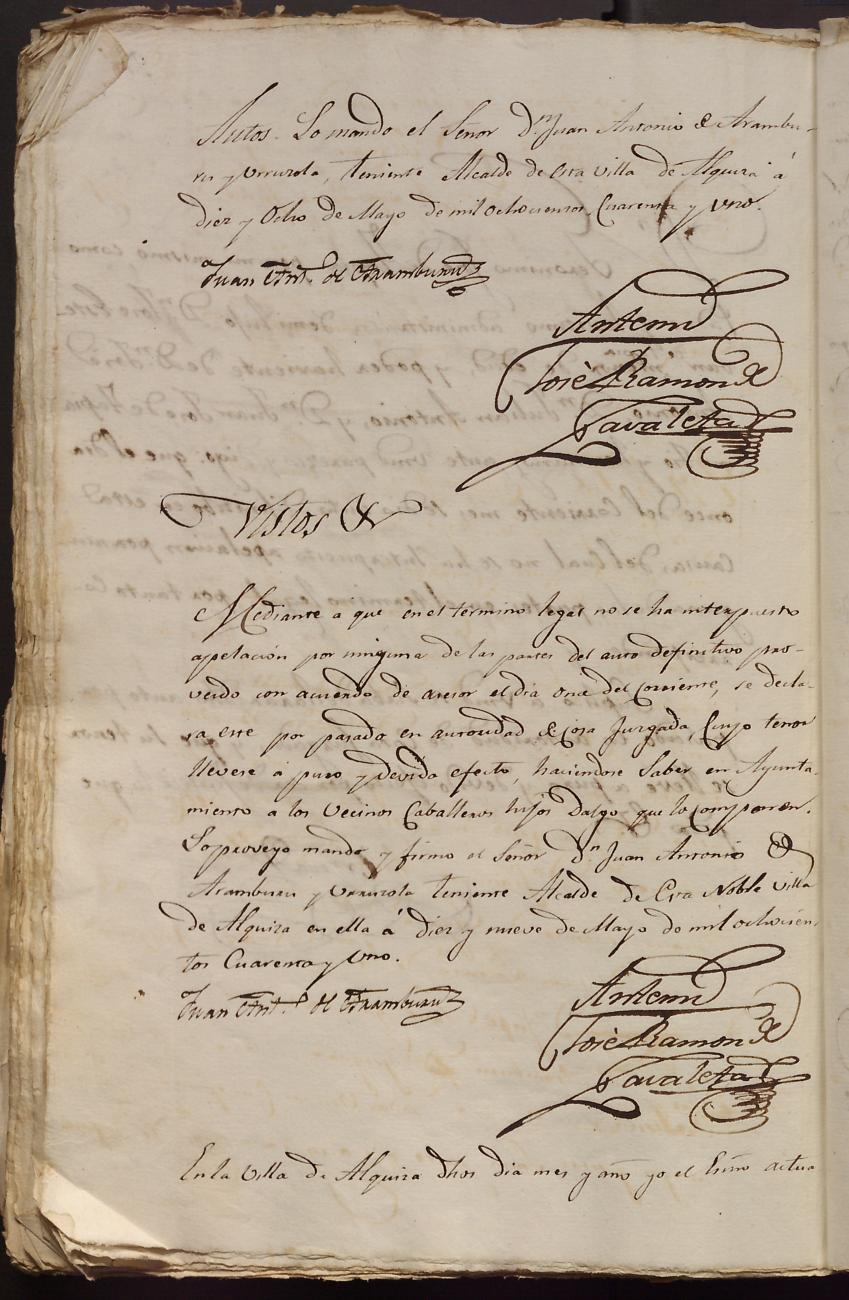 Autos. Lo mando el Señor Dn. Juan Antonio de Arambu-
ru y Urruzola, teniente Alcalde de esta villa de Alquiza á
diez y Ocho de Mayo de mil ochocientos Cuarenta y Uno.
Juan Ant.o de Aramburu
Antemi
José Ramon de
Zavaleta
Vistos &
Mediante a que en el término legal no se ha interpuesto
apelación por ninguna de las partes del auto definitivo pro-
veido con acuerdo de asesor el día once del Corriente, se decla-
ra este por pasado en autoridad de Cosa Juzgada, Cuyo tenor
llevese á puro y devido efecto, haciendose Saber en Ayunta-
miento a los Vecinos Caballeros hijos Dalgo que lo Componen.
Lo proveyo mando y firmo el Señor Dn. Juan Antonio de
Aramburu y Urruzola teniente Alcalde de Esta Noble Villa
de Alquiza en ella á diez y nueve de Mayo de mil ochocien-
tos Cuarenta y Uno.
Juan Ant.o de Aramburu
Antemi
José Ramon de
Zavaleta
En la Villa de Alquiza dhos dia mes y año yo el Esno actua